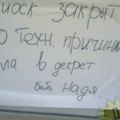 иоск закрыт
о техн. причин
ла в декрет
Надя